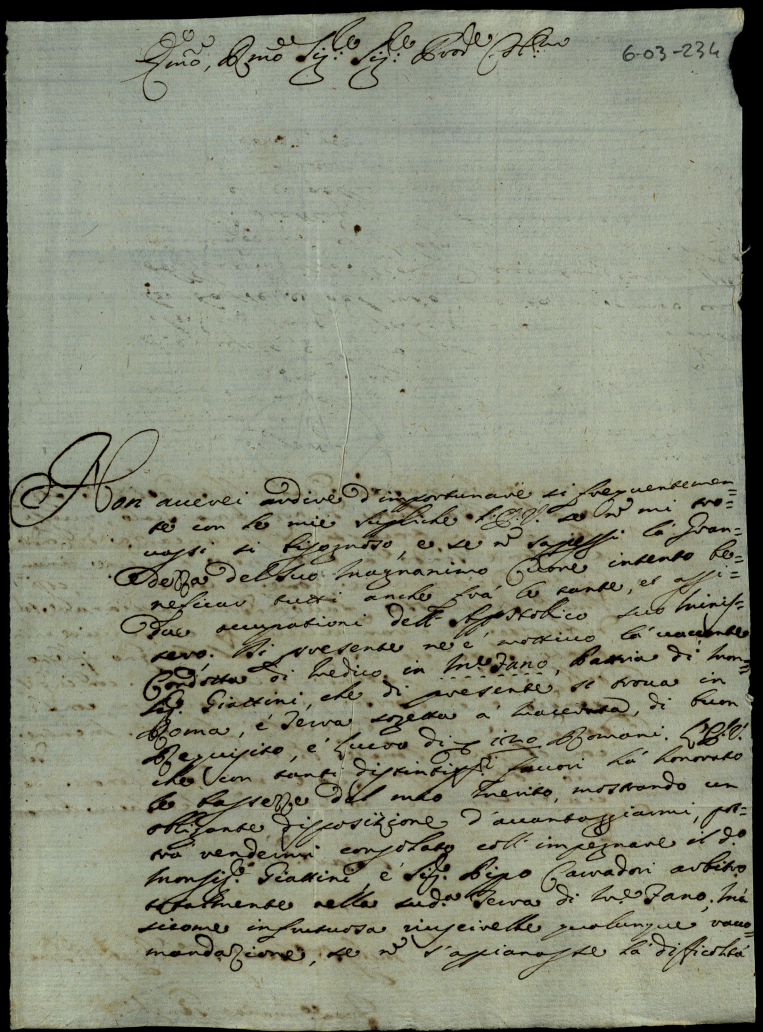 Emo, Rmo Sig.re Sig.re Prōne Col.mo
6-03-234
Non averei ardire d'importunare si frequentemen=
te con le mie supliche l'E.V. se nō mi tro=
vassi si bisognoso, e se nō sapessi la Gran=
dezza del suo Magnanimo Cuore intento be=
neficar tutti anche frà le tante, et assi=
due occupationi dell' Appostolico suo Minis=
tero. Di presente ne è mottivo la vaccante
Condotta di Medico in M.te Fano, Pattria di Mon=
sig. Giattini, che di presente si trova in
Roma, è Terra sogetta a Macerata, di buon
Requisito, è Lucro di Romani. L'E.V.
che con tanti distintissi favori hà honorato
le bassezze del mio Merito, mostrando un
obligante disposizione d'avantaggiarmi, pot=
trà rendermi consolato coll' impegnare il d.o
Monsig.r Giattini è Sig.r Pipo Carradori arbitro
totalmente nella sud.a Terra di M.te Fano; Mà
sicome infrutuosa riuscirebbe qualunque racco=
mandazione, se nō s'appianasse la difficoltà